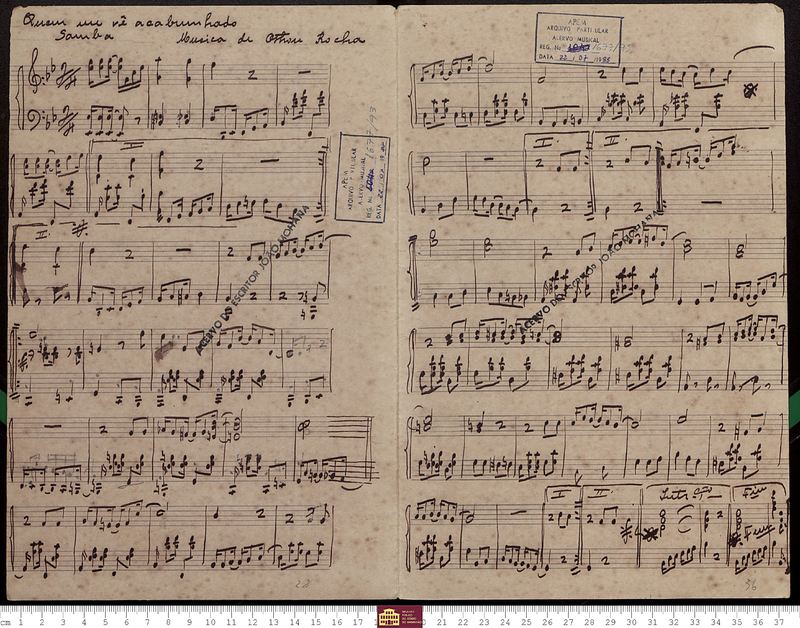 Quem me vê acabrunhado
Samba Musica de Othon Rocha
APEM
ARQUIVO PARTICULAR
ACERVO MUSICAL
REG. No 1677/93
DATA 22 / 07 / 1985
APEM
ARQUIVO PARTICULAR
ACERVO MUSICAL
REG. No 1677/93
DATA
I
II
ACERVO DO ESCRITOR JOÃO MOHANA
28
I
II
ACERVO DO ESCRITOR JOÃO MOHANA
I
II
Fim
Fim
36
cm 1 2 3 4 5 6 7 8 9 10 11 12 13 14 15 16 17 18 21 22 23 24 25 26 27 28 29 30 31 32 33 34 35 36 37